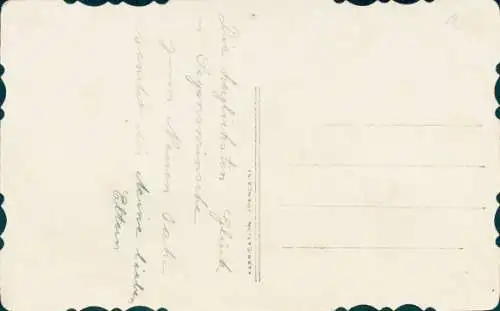 Die herzlichsten Glück
u Segenswünsche
zum Neuen Jahr
sendet dir deine lieben
Eltern